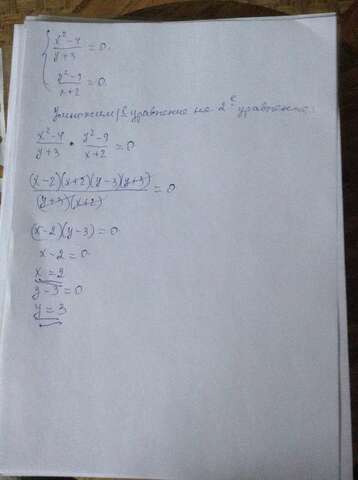 { x²-4 / y+3 = 0.
y²-9 / x+2 = 0.
Умножим 1е уравнение на 2е уравнение:
x²-4 / y+3 · y²-9 / x+2 = 0
(x-2)(x+2)(y-3)(y+3) / (y+3)(x+2) = 0
(x-2)(y-3)=0
x-2=0
x=2
y-3=0
y=3